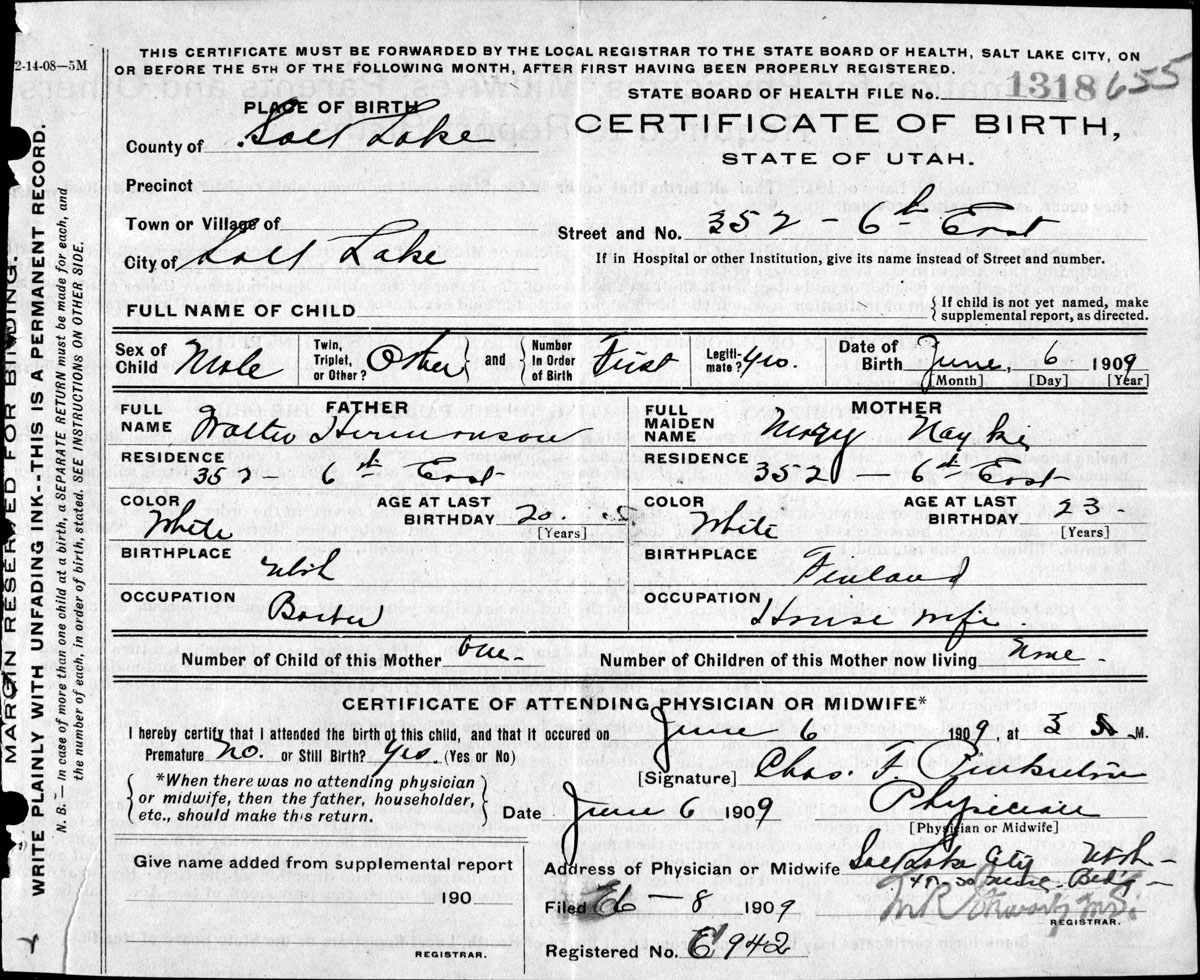 2-14-08—5M
THIS CERTIFICATE MUST BE FORWARDED BY THE LOCAL REGISTRAR TO THE STATE BOARD OF HEALTH, SALT LAKE CITY, ON
OR BEFORE THE 5TH OF THE FOLLOWING MONTH, AFTER FIRST HAVING BEEN PROPERLY REGISTERED.
STATE BOARD OF HEALTH FILE No. 1318655
PLACE OF BIRTH
CERTIFICATE OF BIRTH,
STATE OF UTAH.
County of Salt Lake
Precinct
Town or Village of
Street and No. 352 - 6th East
City of Salt Lake
If in Hospital or other Institution, give its name instead of Street and number.
FULL NAME OF CHILD
If child is not yet named, make
supplemental report, as directed.
Sex of Child Male
Twin, Triplet, or Other? Other and Number In Order of Birth First
Legitimate? yes.
Date of Birth June, 6 1909
[Month] [Day] [Year]
FATHER
FULL NAME Walter Hermonson
RESIDENCE 352 - 6th East
COLOR White
AGE AT LAST BIRTHDAY 20
[Years]
BIRTHPLACE Utah
OCCUPATION Barber
MOTHER
FULL MAIDEN NAME Mary
RESIDENCE 352 - 6th East
COLOR White
AGE AT LAST BIRTHDAY 23
[Years]
BIRTHPLACE Finland
OCCUPATION House wife.
Number of Child of this Mother One-
Number of Children of this Mother now living None -
CERTIFICATE OF ATTENDING PHYSICIAN OR MIDWIFE*
I hereby certify that I attended the birth of this child, and that it occured on June 6 1909, at 3 M.
Premature? no. or Still Birth? yes. (Yes or No)
*When there was no attending physician
or midwife, then the father, householder,
etc., should make this return.
[Signature] Chas. F.
Date June 6 1909
Physician
[Physician or Midwife]
Give name added from supplemental report
190
REGISTRAR.
Address of Physician or Midwife Salt Lake City Utah-
Filed 6 - 8 1909
REGISTRAR.
Registered No. E942
MARGIN RESERVED FOR BINDING.
WRITE PLAINLY WITH UNFADING INK--THIS IS A PERMANENT RECORD.
N. B.—In case of more than one child at a birth, a SEPARATE RETURN must be made for each, and
the number of each, in order of birth, stated. SEE INSTRUCTIONS ON OTHER SIDE.